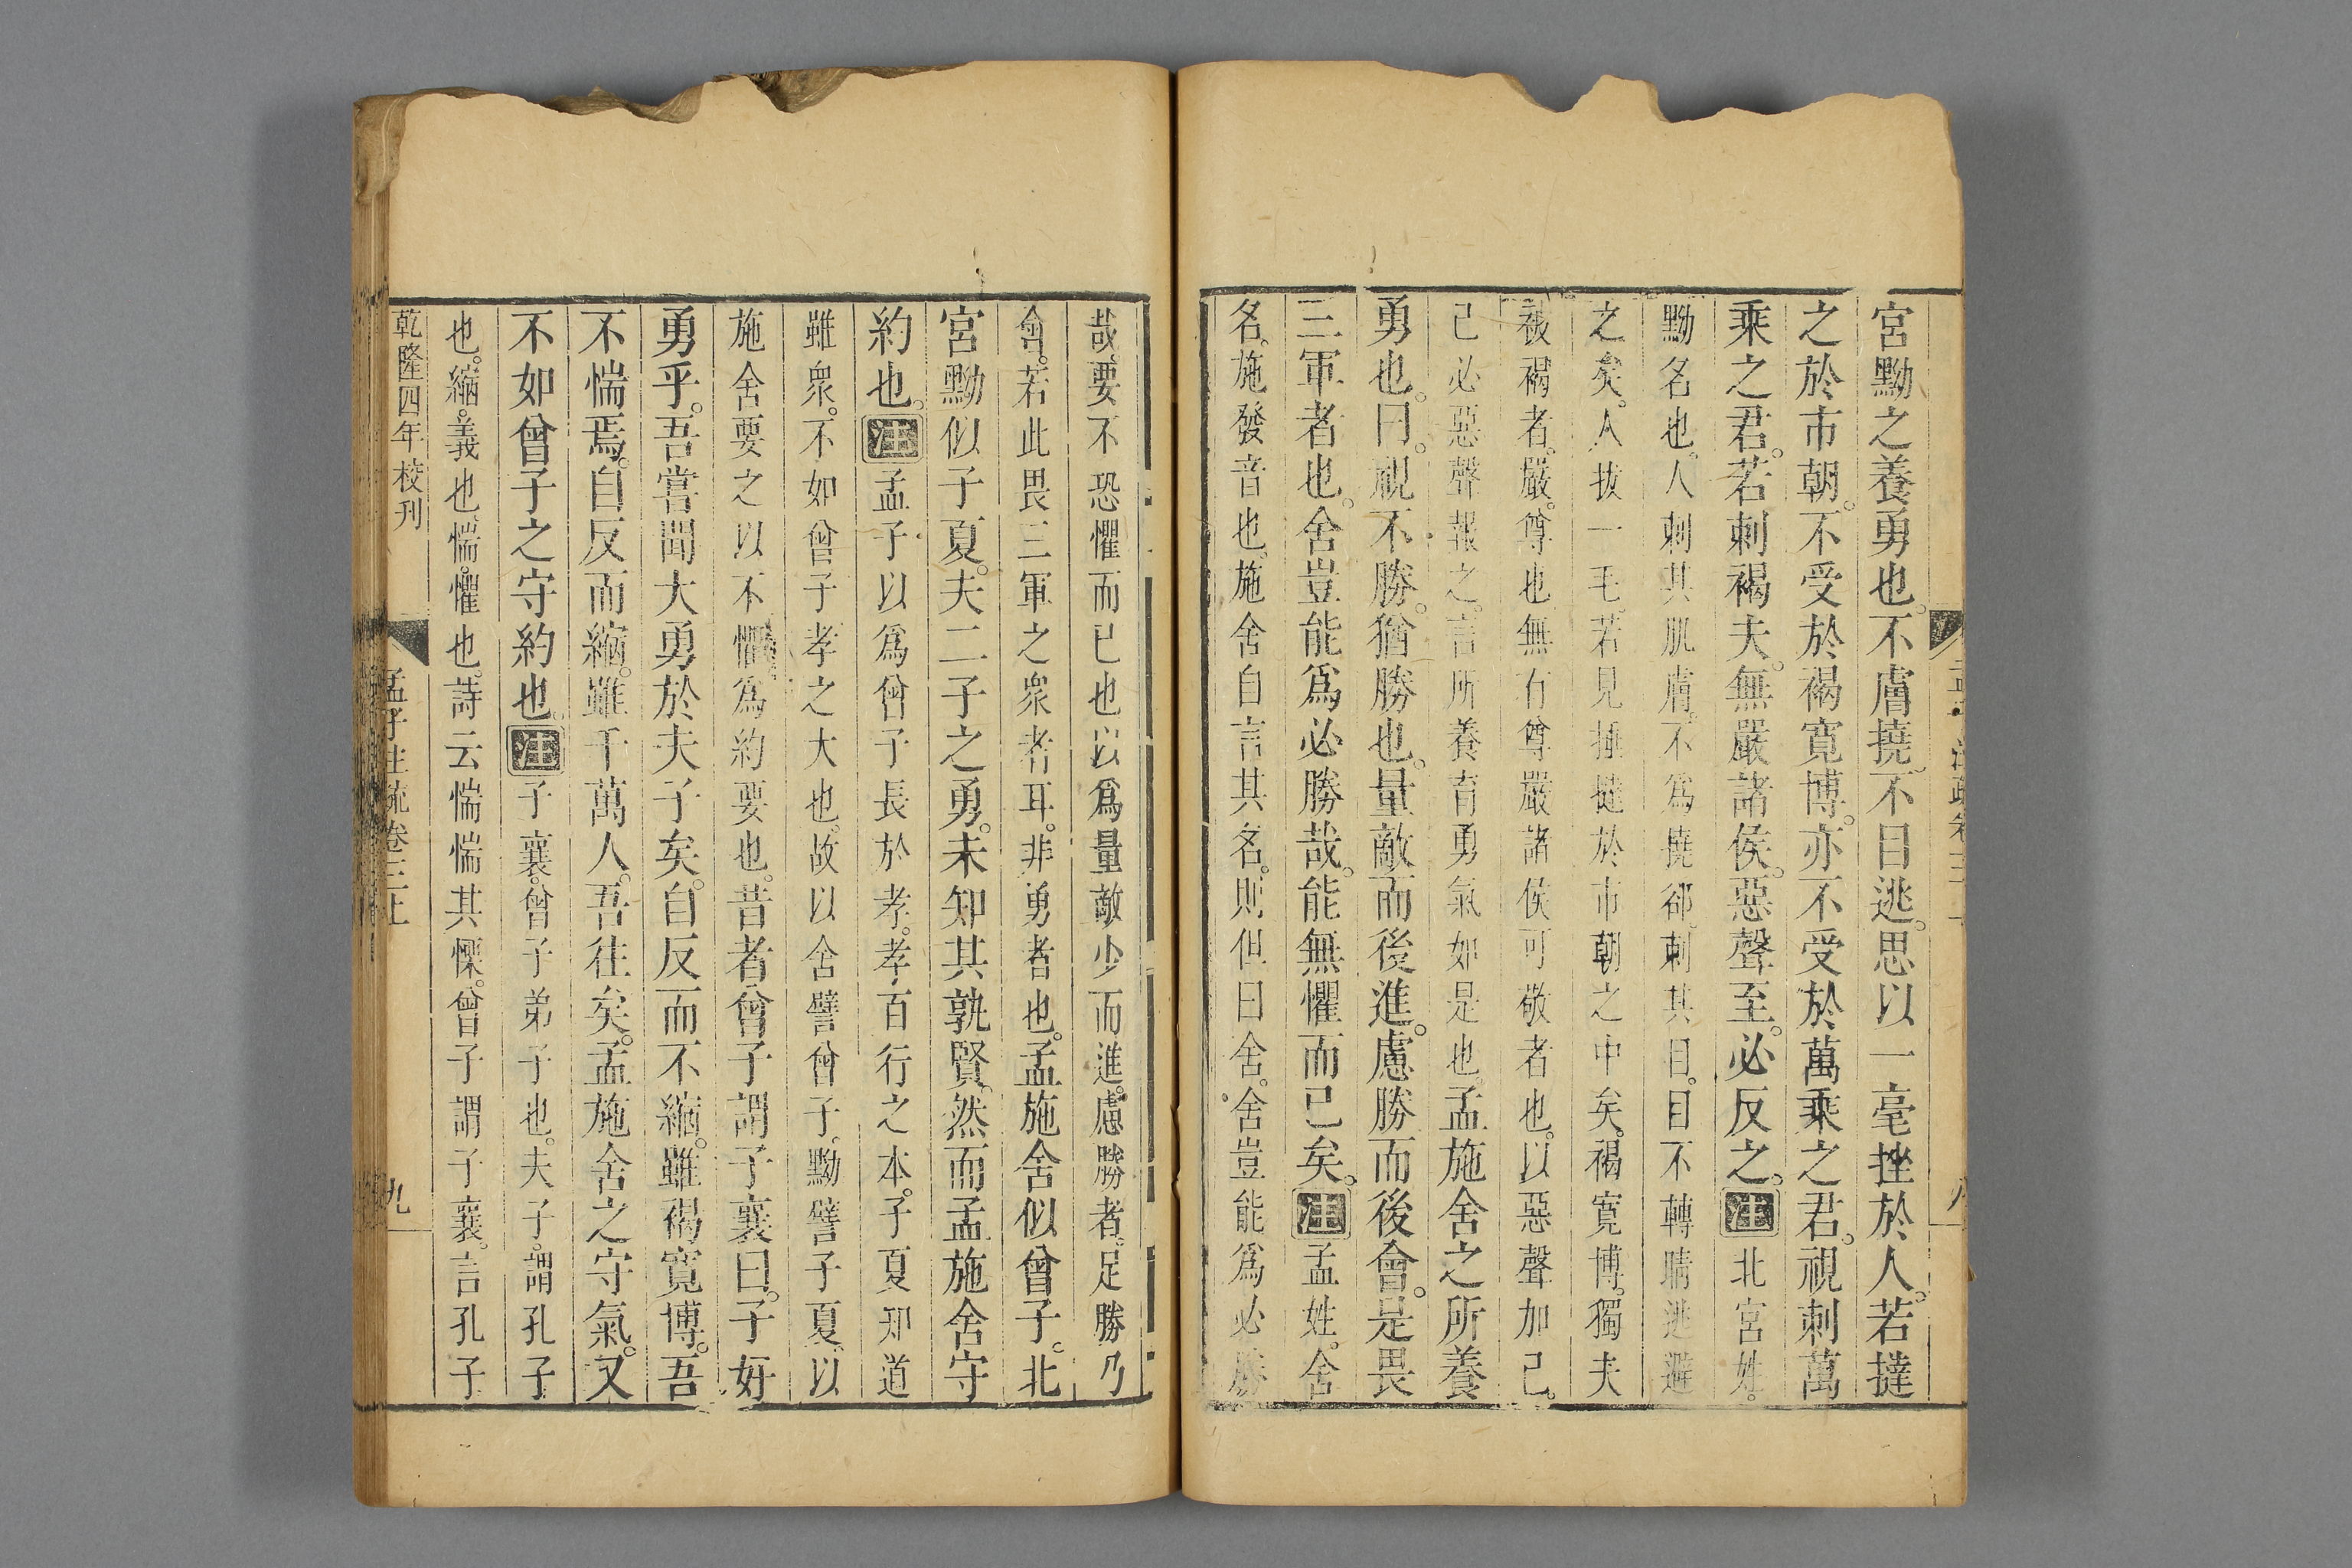 宮黝之養勇也。不膚撓。不目逃。思以一毫挫於人。若撻
之於市朝。不受於褐寬博。亦不受於萬乘之君。視刺萬
乘之君。若刺褐夫。無嚴諸侯。惡聲至。必反之。注北宮姓。
黝名也。人刺其肌膚。不為撓郤。刺其目。目不轉睛逃避
之矣。人拔一毛。若見捶撻於市朝之中矣。褐寬博。獨夫
被褐者。嚴。尊也。無有尊嚴諸侯可敬者也。以惡聲加己。
己必惡聲報之。言所養育勇氣如是也。孟施舍之所養
勇也。曰。視不勝。猶勝也。量敵而後進。慮勝而後會。是畏
三軍者也。舍豈能為必勝哉。能無懼而已矣。注孟姓。舍
名。施發音也。施舍自言其名。則但曰舍。舍豈能為必勝
哉。要不恐懼而已也。以為量敵少而進。慮勝者。足勝乃
會。若此畏三軍之衆者耳。非勇者也。孟施舍似曾子。北
宮黝似子夏。夫二子之勇。未知其孰賢。然而孟施舍守
約也。注孟子以為曾子長於孝。孝百行之本。子夏知道
雖衆。不如曾子孝之大也。故以舍譬曾子。黝譬子夏。以
施舍要之以不懼。為約要也。昔者曾子謂子襄曰。子好
勇乎。吾嘗聞大勇於夫子矣。自反而不縮。雖褐寬博。吾
不惴焉。自反而縮。雖千萬人。吾往矣。孟施舍之守氣。又
不如曾子之守約也。注子襄。曾子弟子也。夫子。謂孔子
也。縮。義也。惴。懼也。詩云惴惴其慄。曾子謂子襄。言孔子
乾隆四年校刊
孟子注疏卷三上
九